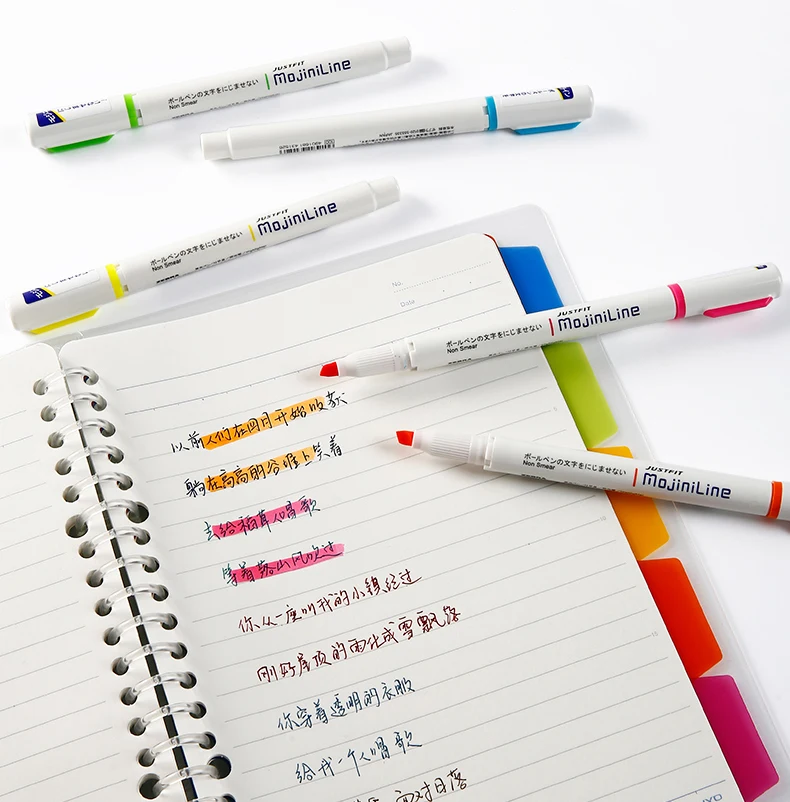 JUSTFIT
MojiniLine
ボールペンの文字をにじませない
Non Smear
JUSTFIT
MojiniLine
ボールペンの文字をにじませない
Non Smear
No.
Date
JUSTFIT
MojiniLine
ボールペンの文字をにじませない
Non Smear
以前人们在四月开始收获
躺在高高的谷堆上笑着
去给稻草人唱歌
等着落山风吹过
你从一座叫我的小镇经过
刚好屋顶的雨化成雪飘落
你穿着透明的衣服
给我一个人唱歌
面对日落
JUSTFIT
MojiniLine
ボールペンの文字をにじませない
Non Smear